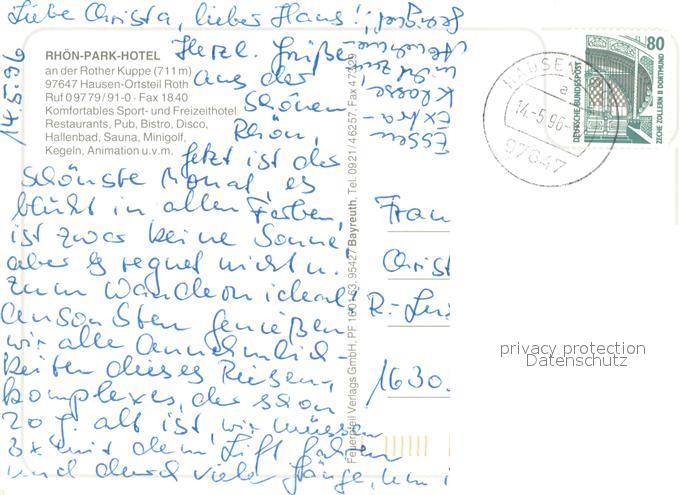 Liebe Christa, lieber Hans!
14.5.96
RHÖN-PARK-HOTEL
an der Rother Kuppe (711 m)
97647 Hausen-Ortsteil Roth
Ruf 09779/91-0 · Fax 1840
Komfortables Sport- und Freizeithotel
Restaurants, Pub, Bistro, Disco,
Hallenbad, Sauna, Minigolf,
Kegeln, Animation u.v.m.
Herzl. Grüße
aus der
schönen
Rhön,
Jetzt ist der
schönste Monat, es
blüht in allen Farben,
ist zwar keine Sonne,
aber es regnet nicht u.
zum Wandern ideal.
Ansonsten genießen
wir alle Annehmlich-
keiten dieses Riesen-
komplexes, der schon
20 J. alt ist, wir müssen
3x mit dem Lift fahren
und durch viele Gänge, um
Essen
Extra-
Klasse
Feuerpfeil Verlags GmbH, PF 100163, 95427 Bayreuth, Tel. 0921/46257, Fax 47329
HAUSEN
a
14.-5.96
97647
80
DEUTSCHE BUNDESPOST
ZECHE ZOLLERN II DORTMUND
Frau
Christ
1630
privacy protection
Datenschutz